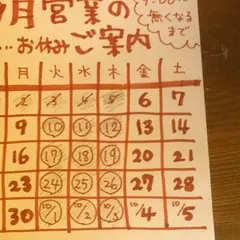 月営業の
9:00〜
無くなる
まで
...お休みご案内
月 火 水 木 金 土
2 3 4 5 6 7
9 10 11 12 13 14
16 17 18 19 20 21
23 24 25 26 27 28
30 10/1 10/2 10/3 10/4 10/5